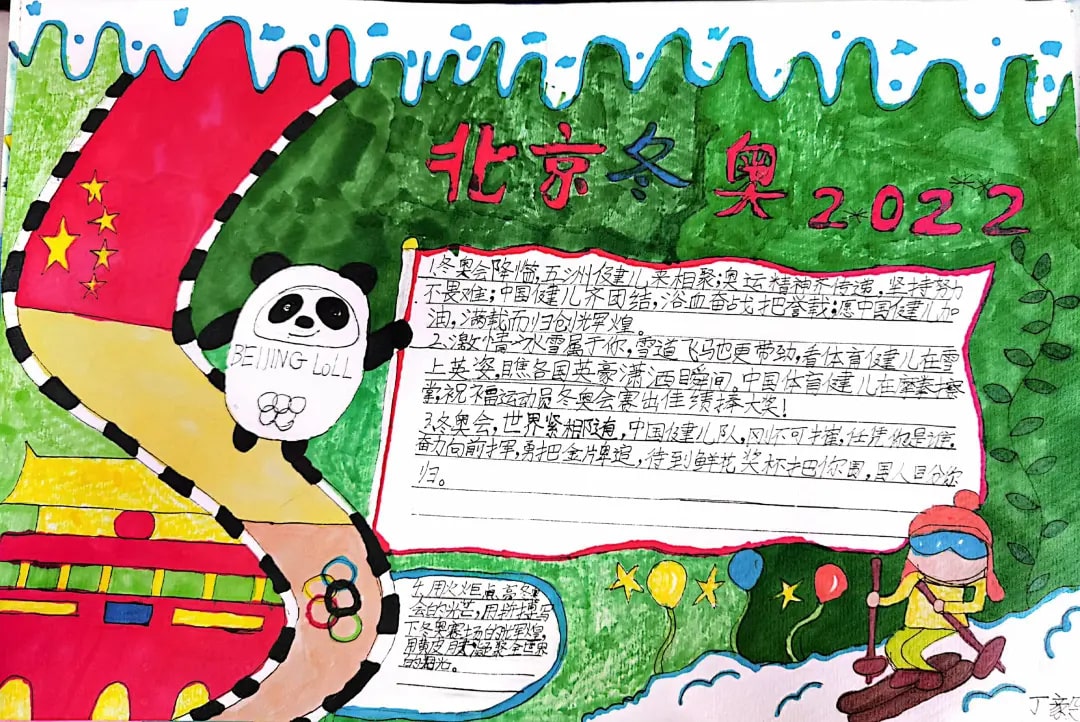 北京冬奥2022
1.冬奥会降临,五洲健儿来相聚;奥运精神齐传递,坚持努力
不畏难;中国健儿齐团结,浴血奋战把誉载;愿中国健儿加
油,满载而归创辉煌。
2.激情冰雪属于你,雪道飞马也更带劲,看体育健儿在雪
上英姿,瞧各国英豪潇洒瞬间。中国体育健儿在摩拳擦
掌,祝福运动员冬奥会赛出佳绩捧大奖!
3.冬奥会,世界紧相随,中国健儿队,刚怀可摧,任凭你是谁,
奋力向前,勇把金牌追,待到鲜花奖杯把你围,国人目分
归。
BEIJING LOLL
4.用火炬点亮冬奥
会的光芒,用拼搏写
下冬奥赛场的辉煌,
用黄皮肤凝聚全世界
的
丁